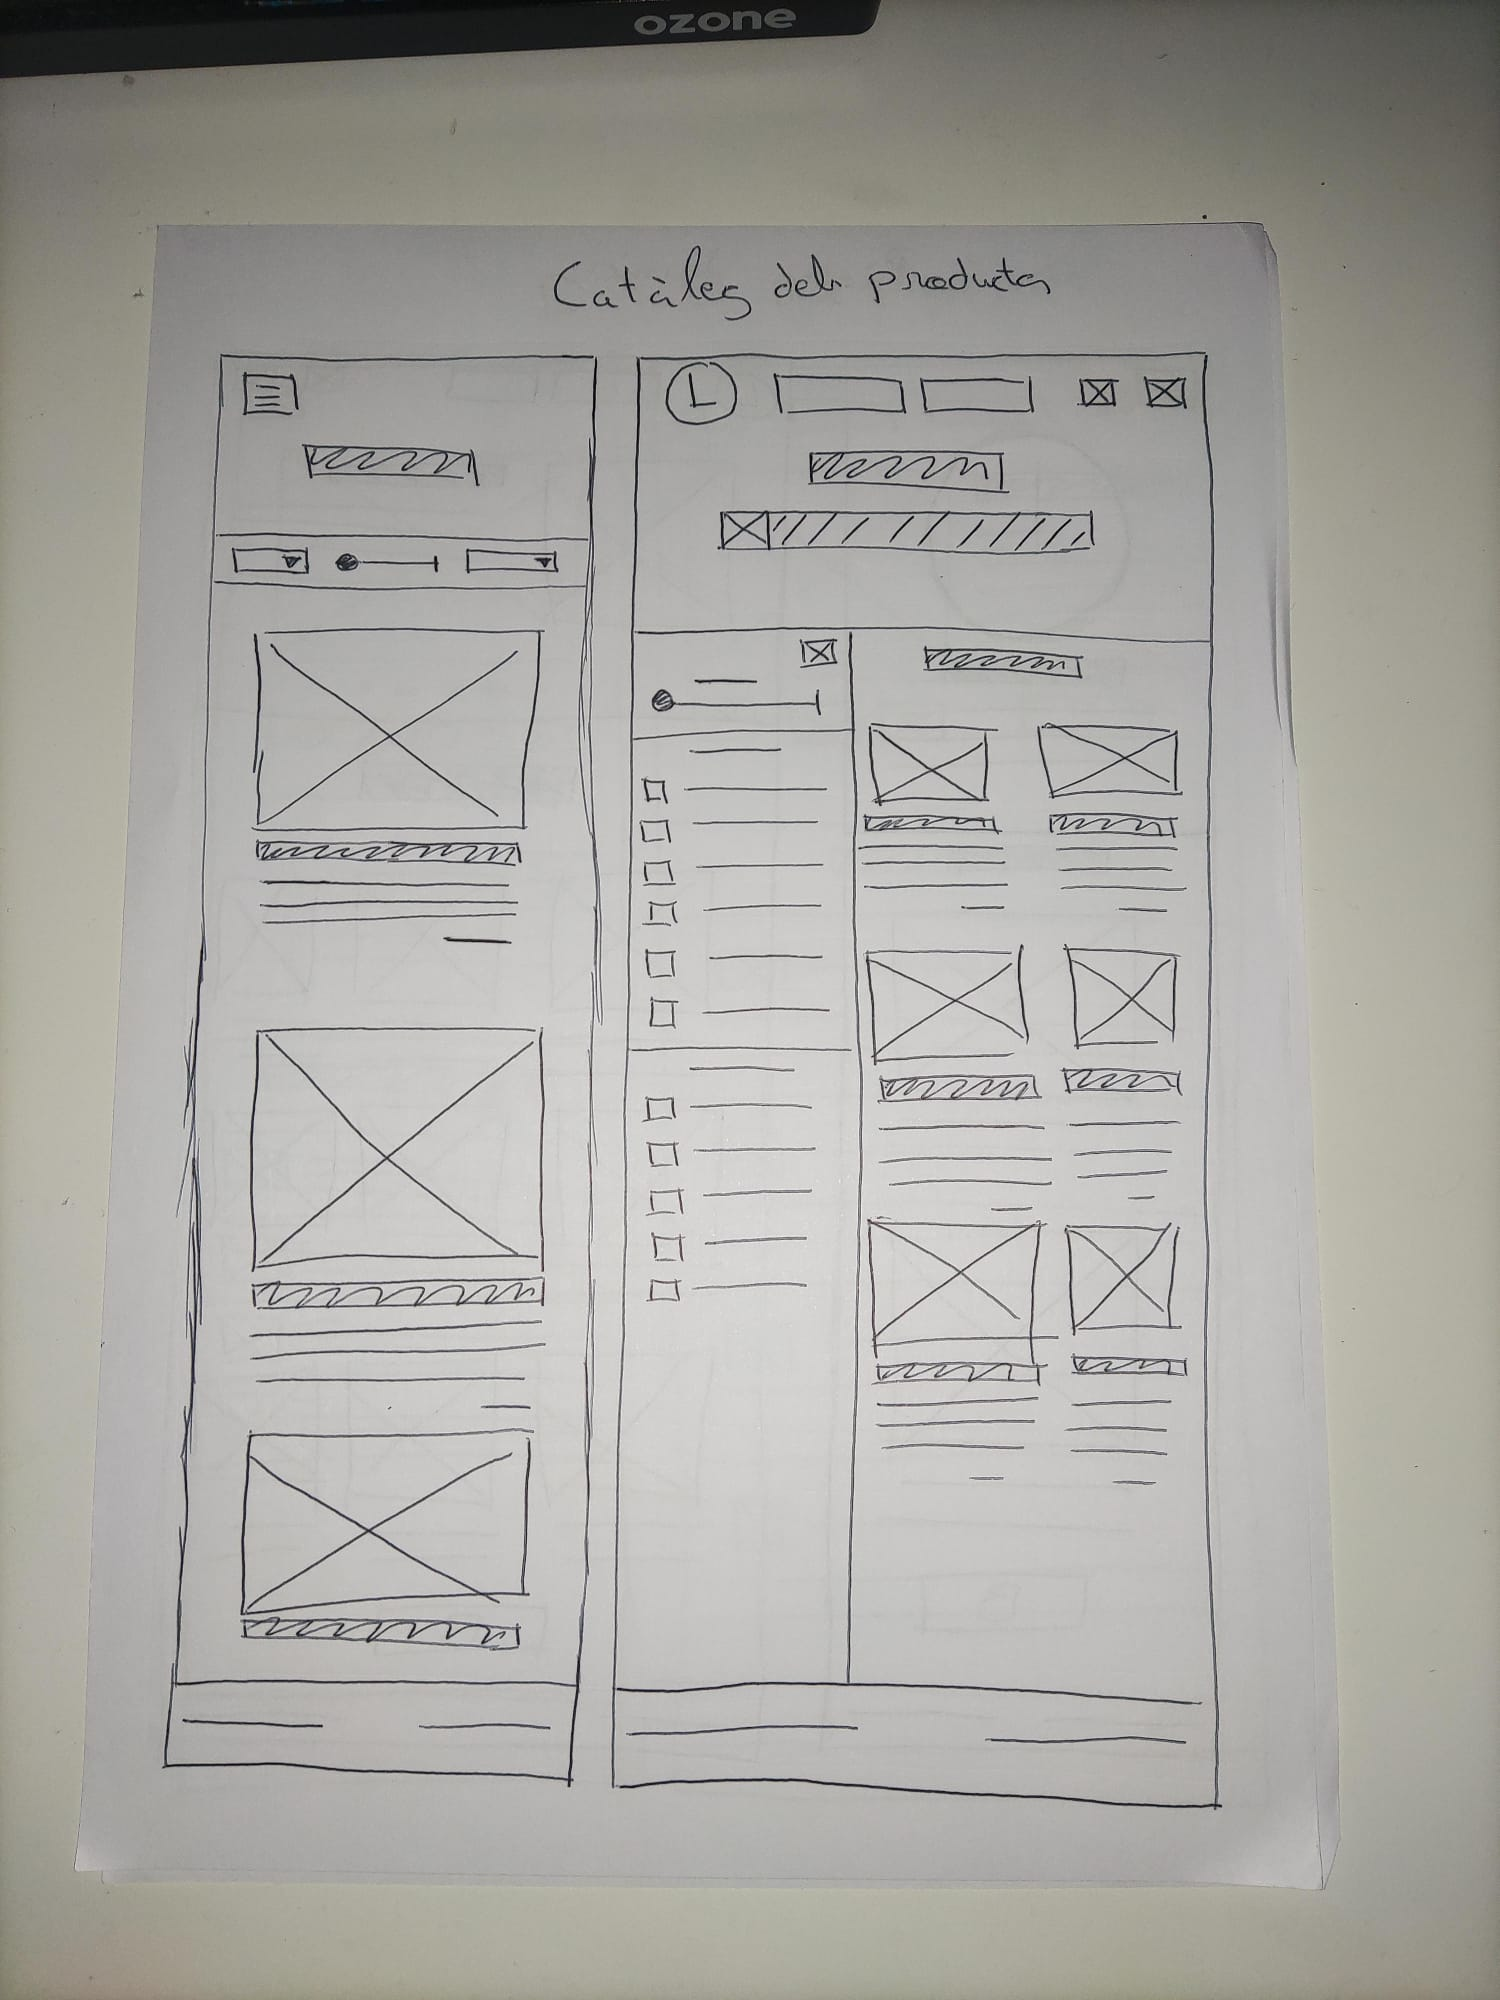 ozone
Catàleg dels productes
L